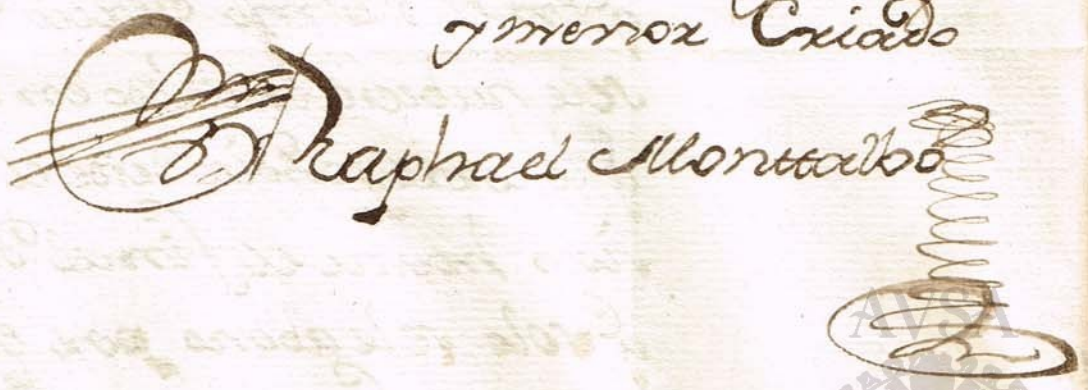 y menor Criado
Raphael Monttalbo
AVSA